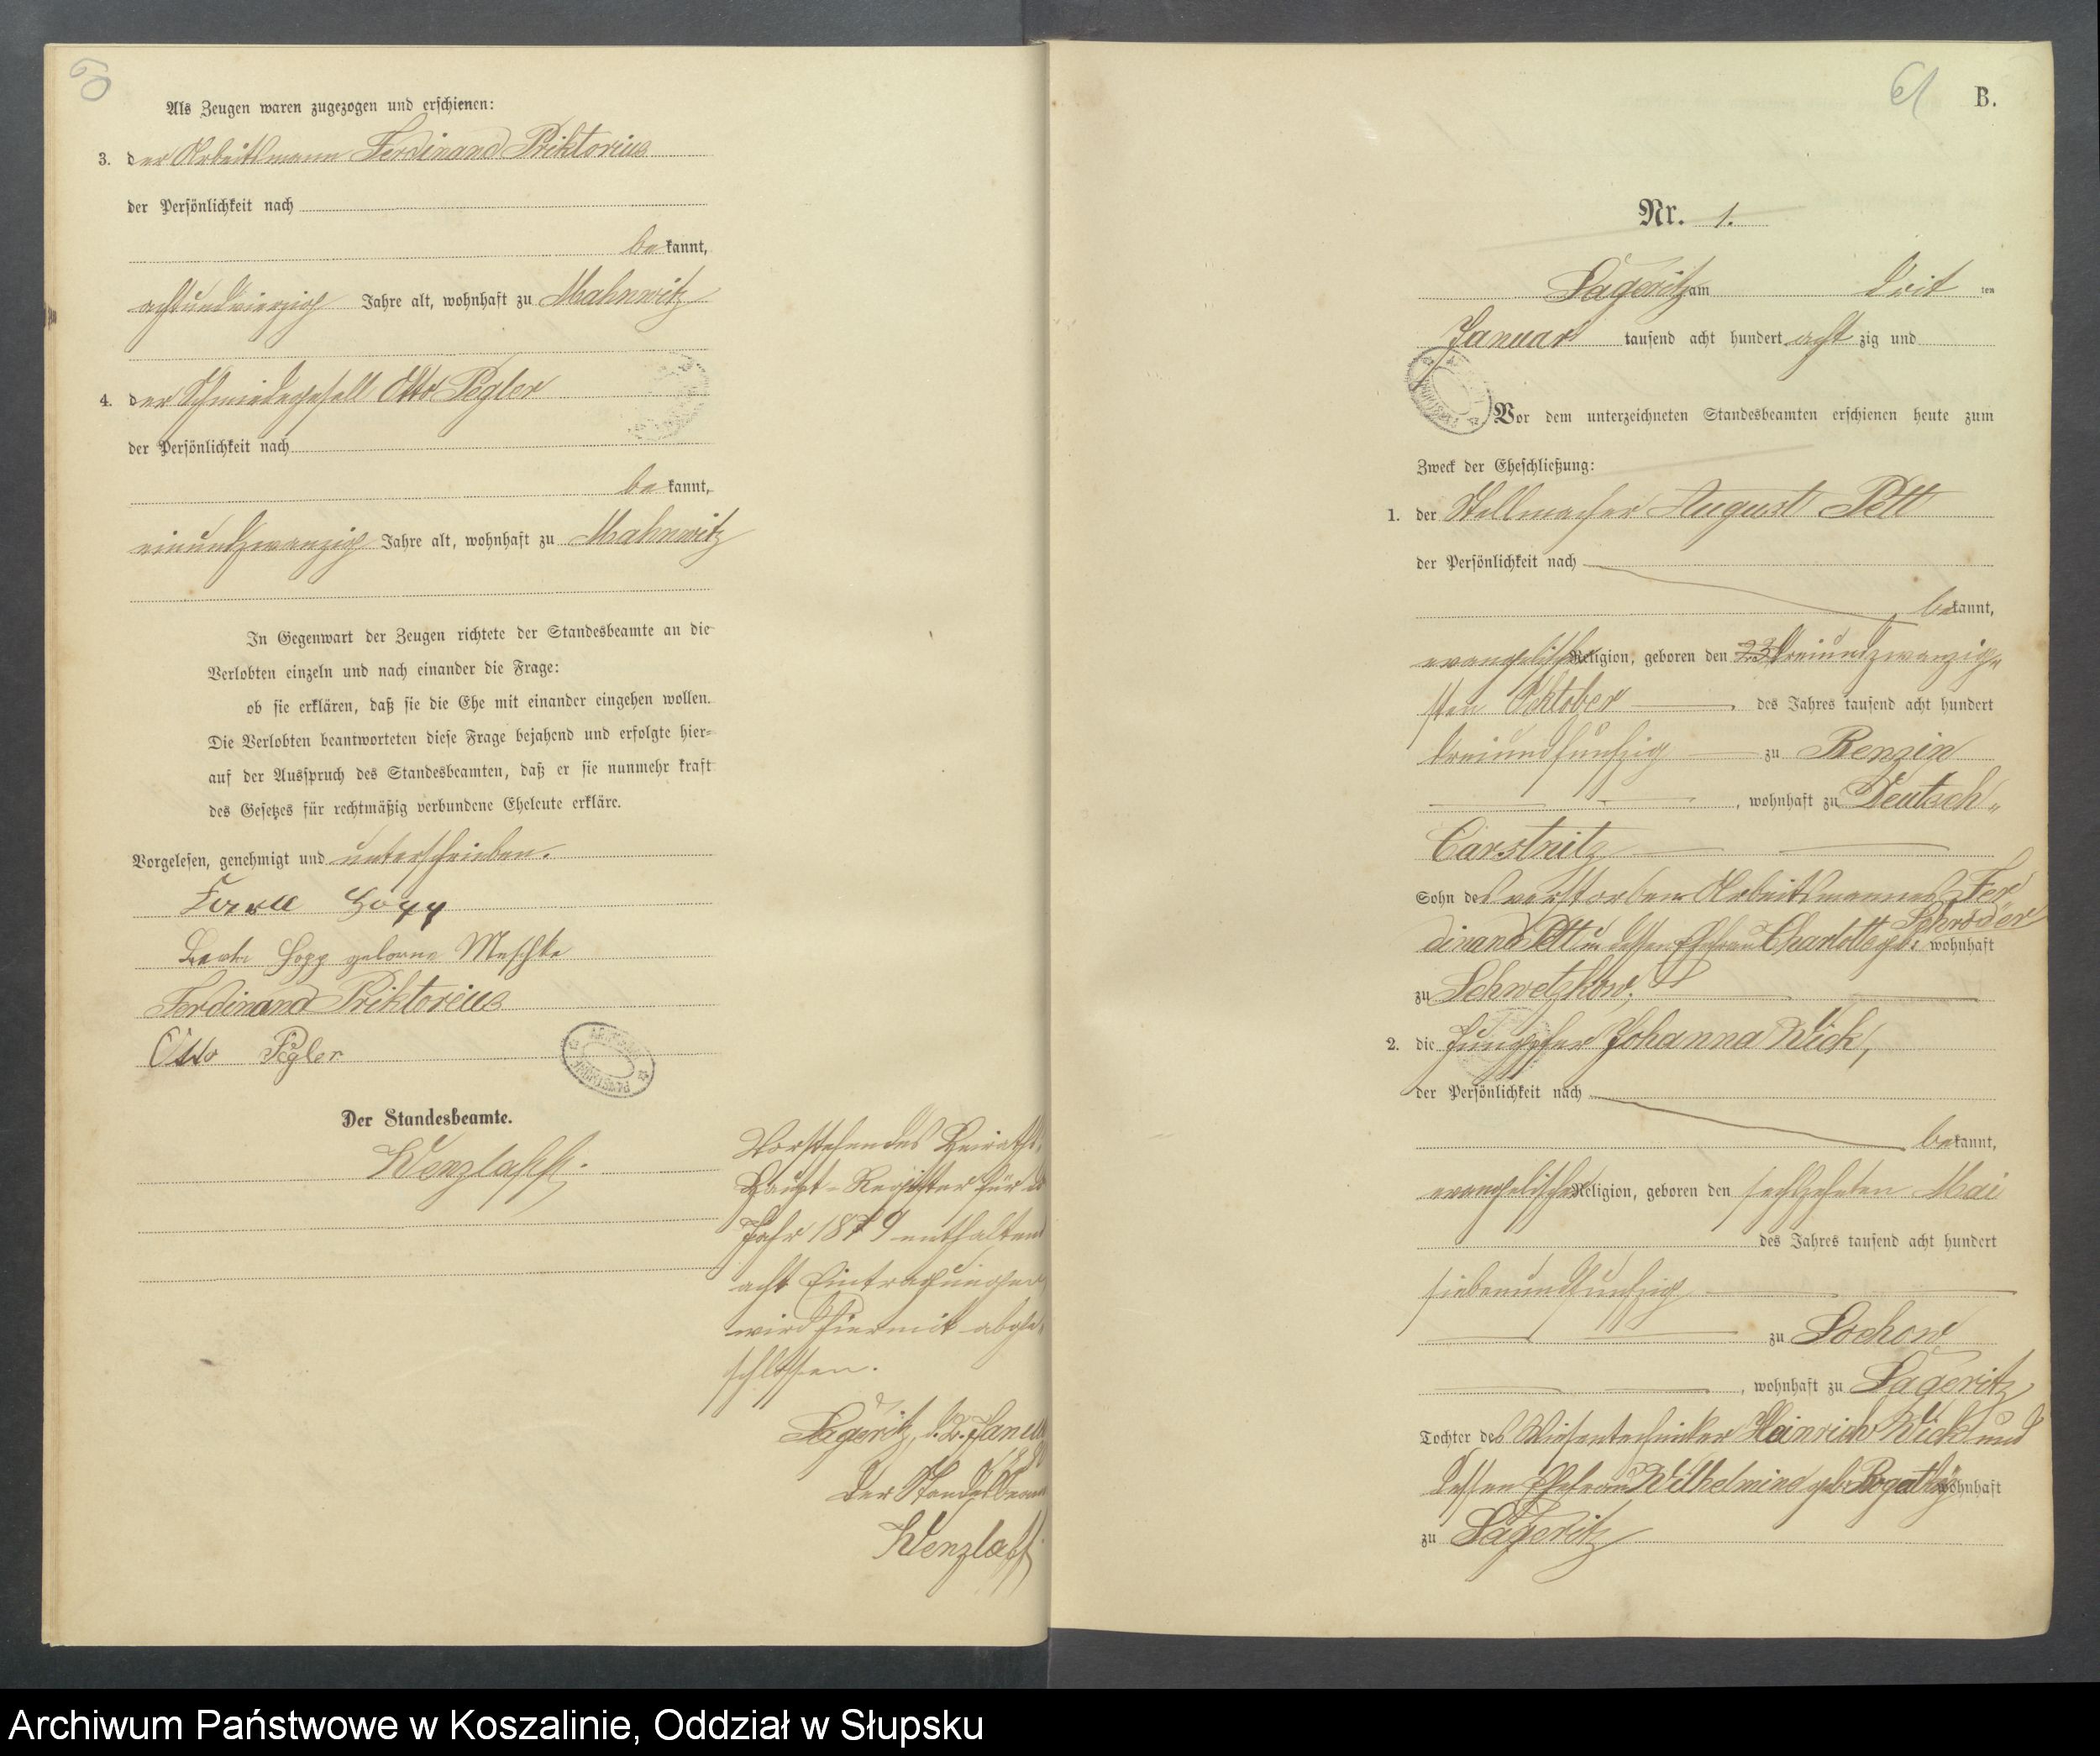 60
Als Zeugen waren zugezogen und erschienen:
3. der Arbeitsmann Ferdinand Priktorius
der Persönlichkeit nach
be kannt,
achtundvierzig Jahre alt, wohnhaft zu Mahnwitz
4. der Schmiedegesell Otto Pegler
der Persönlichkeit nach
be kannt,
einundzwanzig Jahre alt, wohnhaft zu Mahnwitz
In Gegenwart der Zeugen richtete der Standesbeamte an die
Verlobten einzeln und nach einander die Frage:
ob sie erklären, daß sie die Ehe mit einander eingehen wollen.
Die Verlobten beantworteten diese Frage bejahend und erfolgte hier-
auf der Ausspruch des Standesbeamten, daß er sie nunmehr kraft
des Gesetzes für rechtmäßig verbundene Eheleute erkläre.
Vorgelesen, genehmigt und unterschrieben.
Hopp
Hopp geborne Meschke
Ferdinand Priktorius
Otto Pegler
Der Standesbeamte.
Wenzlaff.
Vorstehendes Heiraths-
Haupt-Register für d
Jahr 1879 enthaltend
acht Eintragungen
wird hiermit abge-
schlossen.
Lageritz, d. 2. Janu
Der Standesbeam
Wenzlaff
61 B.
Nr. 1.
Lageritz am drit ten
Januar tausend acht hundert acht zig und
Vor dem unterzeichneten Standesbeamten erschienen heute zum
Zweck der Eheschließung:
1. der Stellmacher August Pett
der Persönlichkeit nach
be kannt,
evangelischer Religion, geboren den 23 dreiundzwanzig-
sten Oktober des Jahres tausend acht hundert
dreiundfünfzig zu Renzin
, wohnhaft zu Deutsch-
Carstnitz
Sohn des verstorben Arbeitsmannes Fer
dinand Pett u. dessen Ehefrau Charlotte geb. Schröder wohnhaft
zu Schwetzkow,
2. die Jungfer Johanna Wick,
der Persönlichkeit nach
be kannt,
evangelischer Religion, geboren den sechszehnten Mai
des Jahres tausend acht hundert
siebenundfünfzig
zu Lochow
, wohnhaft zu Lageritz
Tochter des Wiesentechniker Heinrich Wick und
dessen Ehefrau Wilhelmine geb. wohnhaft
zu Lageritz
Archiwum Państwowe w Koszalinie, Oddział w Słupsku